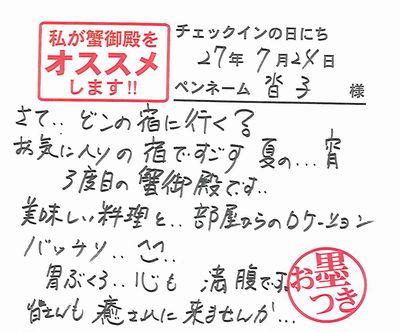 私が蟹御殿を
オススメ
します!!
チェックインの日にち
27年7月24日
ペンネーム 沓子 様
さて.. どこの宿に行く?
お気に入りの宿ですごす 夏の... 宵
3度目の蟹御殿です..
美味しい料理と.. 部屋からのロケーション
バッチリ..
胃ぶくろ.. 心も 満腹です。
皆さんも 癒されに来ませんか...
お墨つき